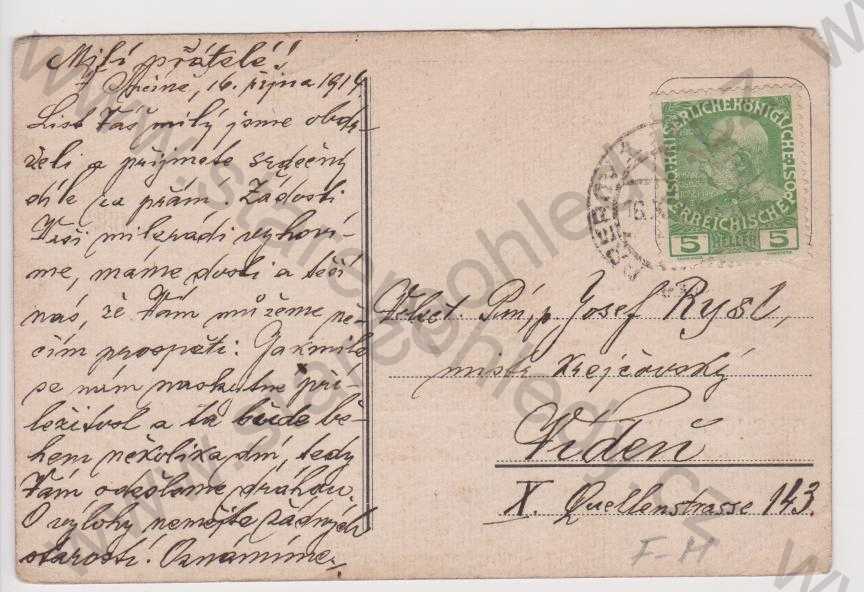 Milí přátelé!
V Mčině, 16. října 1914
List Váš milý jsme obdr-
želi a přijmete srdečný
dík za přání. Žádosti
Vaší milerádi vyhoví-
me, máme dosti a těší
nás, že Vám můžeme ně-
čím prospěti. Jakmile
se nám naskytne pří-
ležitost a ta bude bě-
hem několika dní, tedy
Vám odešleme dráhou.
O výlohy nemějte žádných
starostí. Oznámíme
KAISERLICHE KÖNIGLICHE
ÖSTERREICHISCHE POST
5 HELLER 5
Velect. Pán, p. Josef Rysl,
mistr krejčovský
Vídeň
X. Quellenstrasse 143.
F-H
www.starepohledy.cz